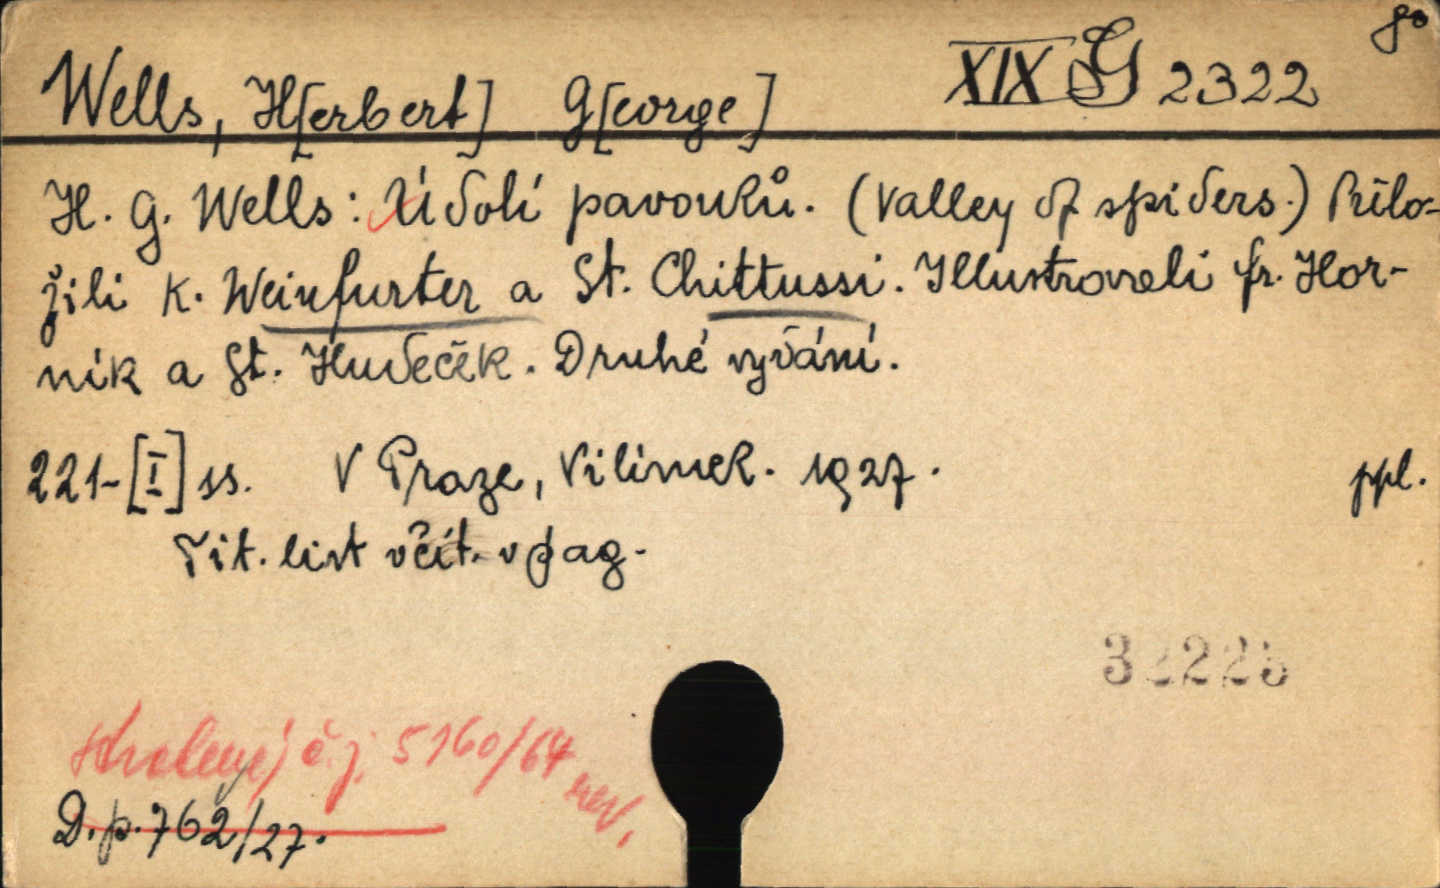 8°
Wells, H[erbert] G[eorge] XIX G 2322
H. G. Wells: Údolí pavouků. (Valley of spiders.) Přilo-
žili K. Weinfurter a St. Chittussi. Illustrovali Fr. Hor-
ník a St. Hudeček. Druhé vydání.
221-[I] ss. V Praze, Vilímek. 1927. ppl.
Tit. list včít. v pag.
32225
ztracený č.j. 5160/64
rev.
D.p. 762/27.